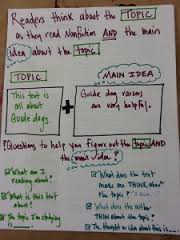 Readers think about the TOPIC
as they read Nonfiction AND the main
idea about the topic.
TOPIC
MAIN IDEA
This text is
all about
Guide dogs.
+
Guide dog
are very helpful.
?Questions to help you figure out the topic AND
the main idea?
What am I
reading about?
What is this text
about?
The topic I'm studying
is
What does the text
make me THINK
about the topic?
What does the author
THINK about the topic?
The thought or idea about this is